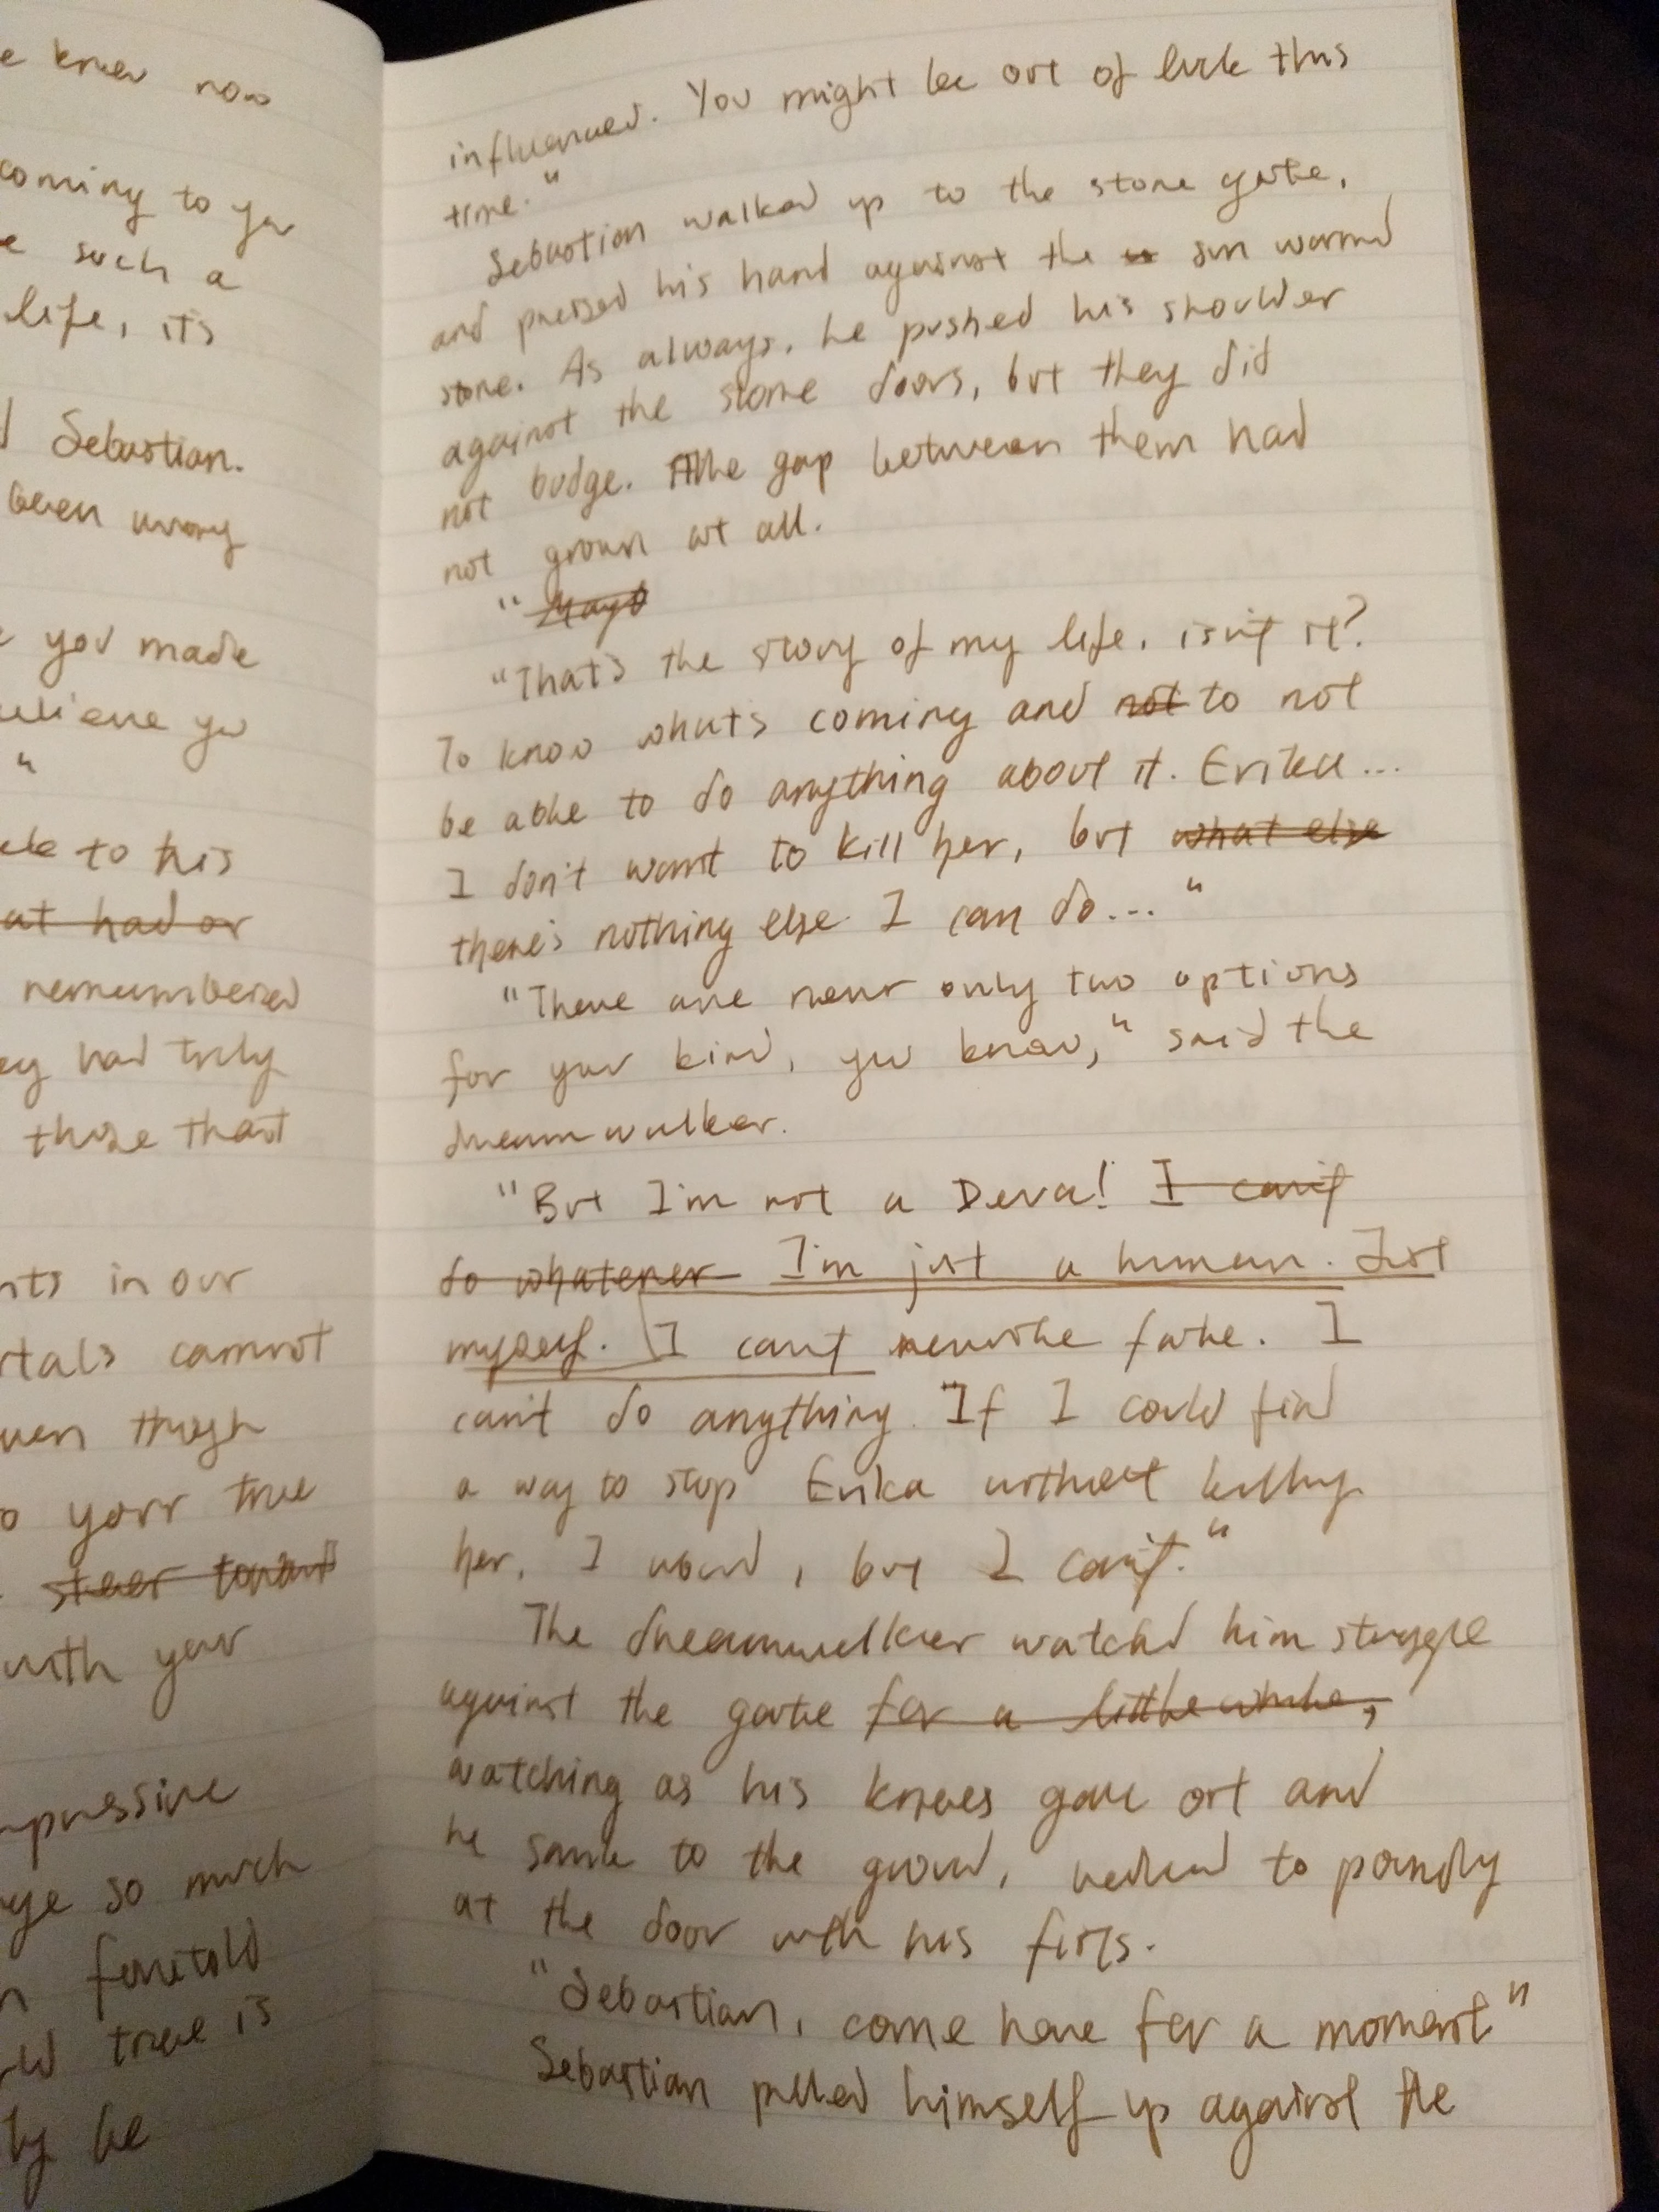 e knew now
coming to you
e such a
life, it's
d Sebastian.
been wrong
e you made
believe you
"
ck to his
at had or
remembered
ey had truly
those that
nts in our
rtals cannot
ven though
o your true
steer toward
with your
mpressive
nge so much
n foretold
ld true is
ly be
influenced. You might be out of luck this
time."
Sebastian walked up to the stone gate,
and pressed his hand against the sun warmed
stone. As always, he pushed his shoulder
against the stone doors, but they did
not budge. The gap between them had
not grown at all.
"Mayb
"That's the story of my life, isn't it?
To know what's coming and not to not
be able to do anything about it. Erika...
I don't want to kill her, but what else
there's nothing else I can do..."
"There are never only two options
for your kind, you know," said the
dreamwalker.
"But I'm not a Deva! I can't
do whatever I'm just a human. Just
myself. I can't rewrite fate. I
can't do anything. If I could find
a way to stop Erika without killing
her, I would, but I can't."
The dreamwalker watched him struggle
against the gate for a little while,
watching as his knees gave out and
he sank to the ground, reduced to pounding
at the door with his fists.
"Sebastian, come here for a moment"
Sebastian pulled himself up against the